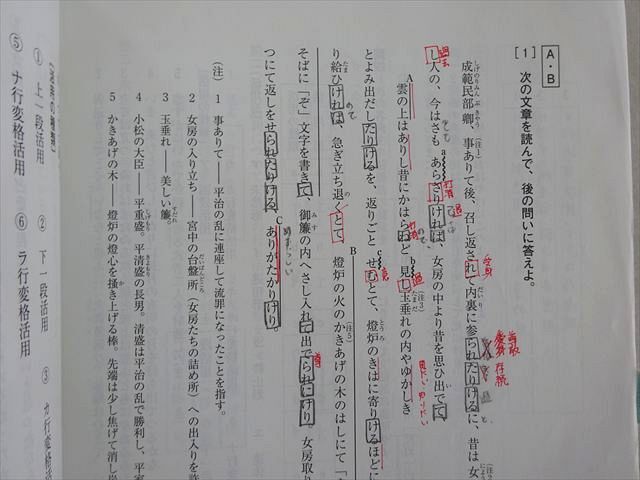 A・B
[1] 次の文章を読んで、後の問いに答えよ。
成範民部卿、事ありて後、召し返されて内裏に参られたりけるに、昔は女
し人の、今はさもあらざりければ、女房の中より昔を思ひ出でて、
A 雲の上はありし昔にかはらねど見し玉垂れの内やゆかしき
とよみ出だしたりけるを、返りごとせむとて、燈炉のきはに寄りけるほどに
り給ひければ、急ぎ立ち退くとて、燈炉の火のかきあげの木のはしにて
そばに「ぞ」文字を書きて、御簾の内へさし入れて出でられにけり。女房取り
つにて返しをせられたりける、ありがたかりけり。
(注)
1 事ありて――平治の乱に連座して流罪になったことを指す。
2 女房の入り立ち――宮中の台盤所(女房たちの詰め所)への出入りを許
3 玉垂れ――美しい簾。
4 小松の大臣――平重盛。平清盛の長男。清盛は平治の乱で勝利し、平家
5 かきあげの木――燈炉の燈心を掻き上げる棒。先端は少し焦げて消し炭
① 上一段活用
② 下一段活用
③ カ行変格活用
⑤ ナ行変格活用
⑥ ラ行変格活用